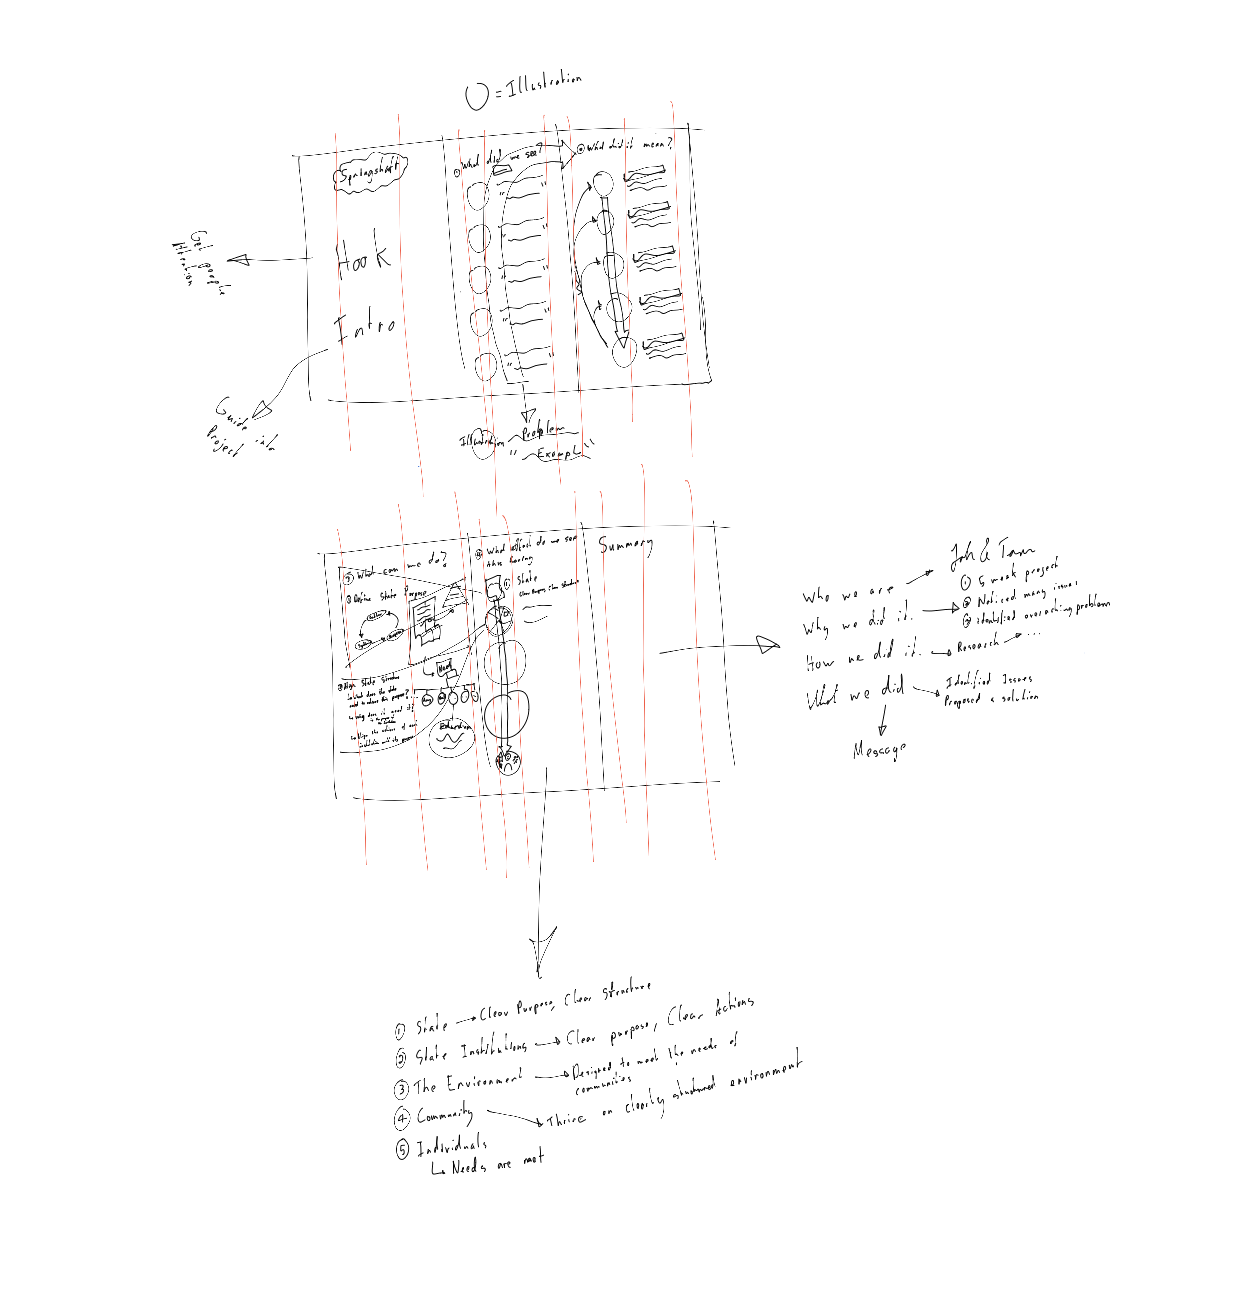 = Illustration
Springshift
Hook
Intro
Get people
Attention
Guide
Project into
① What did we see?
" "
" "
" "
" "
" "
② What did it mean?
Illustration Problem
" Example "
③ What can we do?
① Define State Purpose
② Align State Structure
Need
Education
④ What effect do we see
this having
① State
Summary
Who we are
Why we did it.
① 5 week project
② Noticed many issues
③ Identified overarching problem
How we did it. Research ...
What we did
Identified Issues
Proposed a solution
Message
① State Clear Purpose, Clear Structure
② State Institutions Clear purpose, Clear Actions
③ The Environment Designed to meet the needs of
communities
④ Community Thrive on clearly structured environment
⑤ Individuals
Needs are met